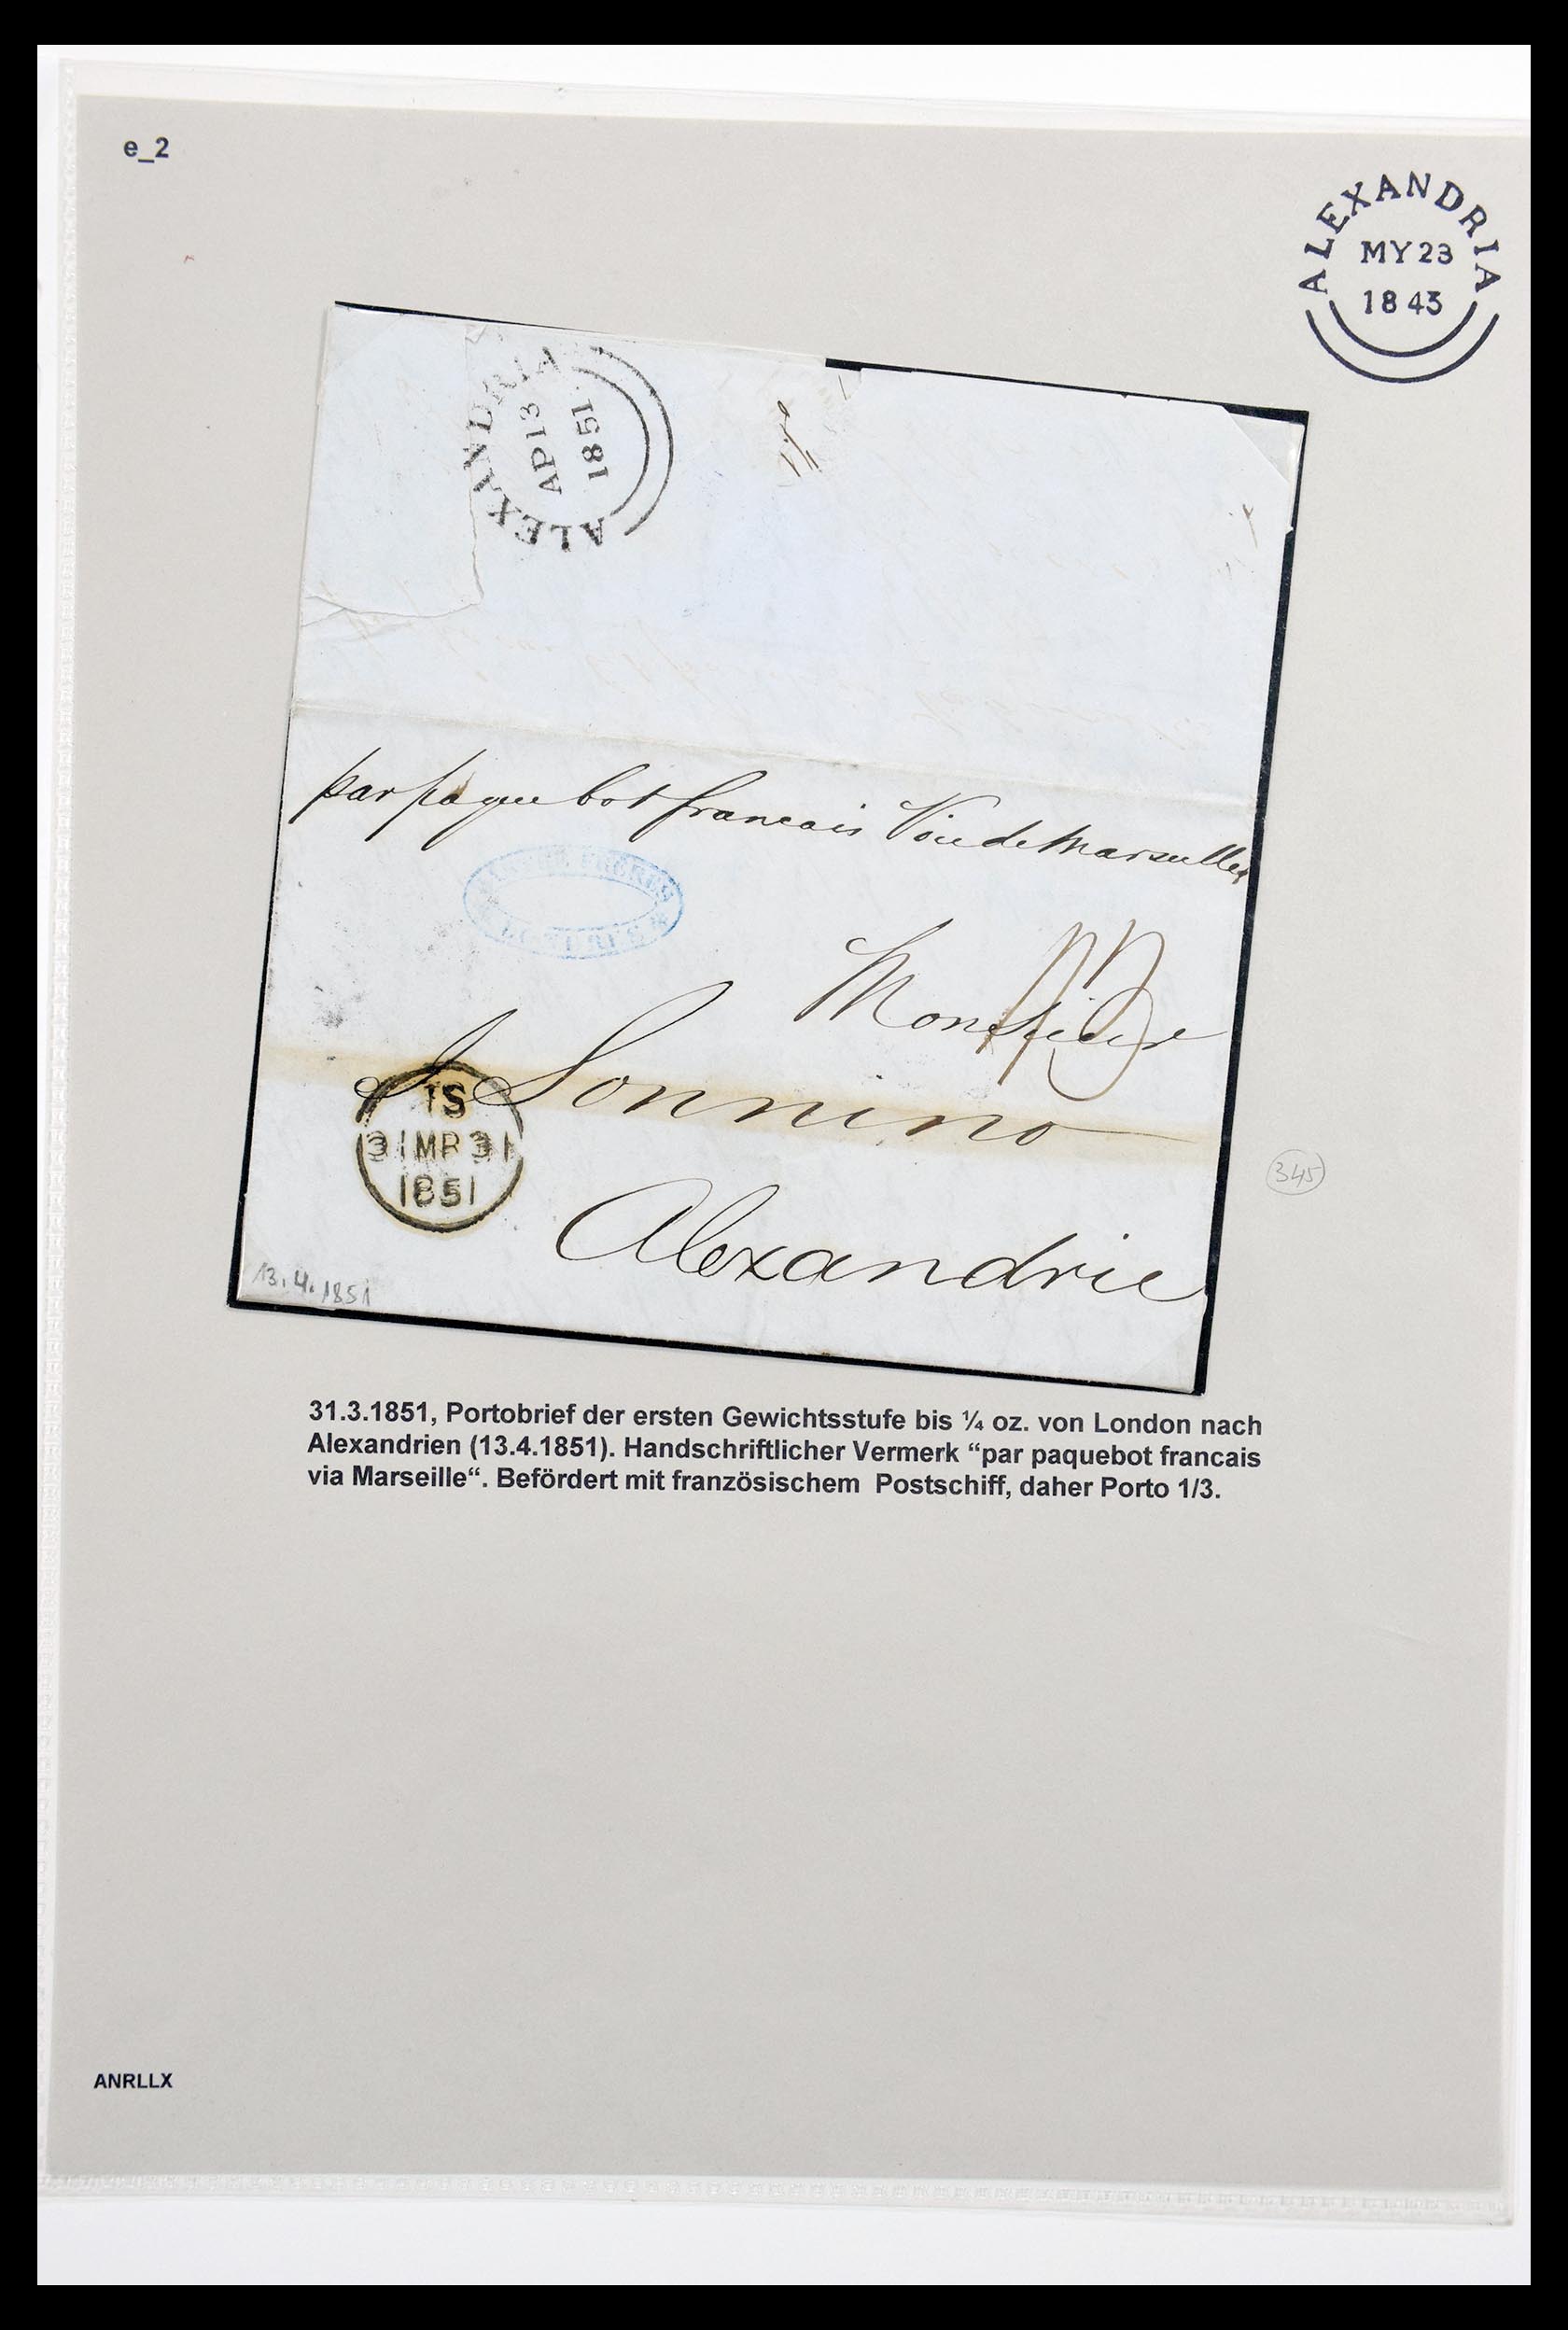 e_2
ALEXANDRIA
MY 23
1843
ALEXANDRIA
AP 13
1851
par paquebot francais Voie de Marseilles
FRERES
LONDRES
Monsieur
1/3
S Sonnino
Alexandrie
1S
31 MR 31
1851
13.4.1851
345
31.3.1851, Portobrief der ersten Gewichtsstufe bis ¼ oz. von London nach
Alexandrien (13.4.1851). Handschriftlicher Vermerk “par paquebot francais
via Marseille“. Befördert mit französischem Postschiff, daher Porto 1/3.
ANRLLX